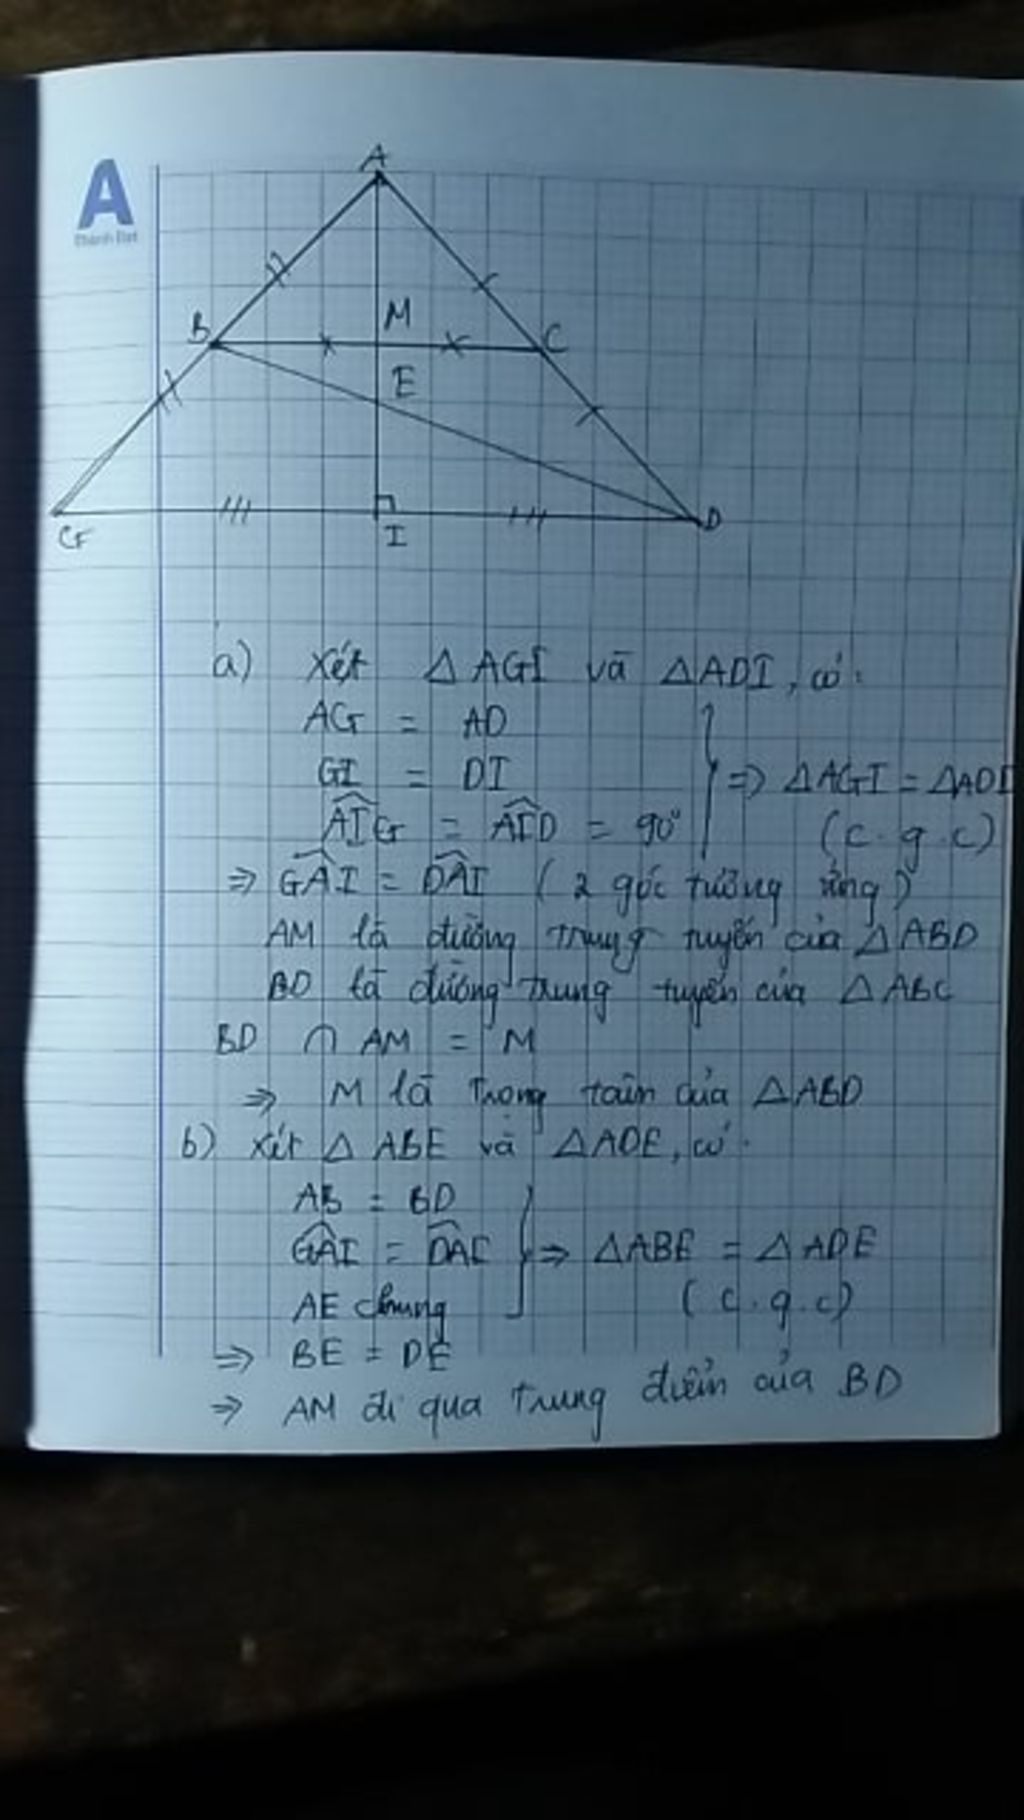 A
Thành Đạt
A
B
M
C
E
G
I
D
a) Xét Δ AGI và ΔADI, có:
AG = AD
GI = DI
=> ΔAGI = ΔADI
AIG = AID = 90°
(c.g.c)
=> GAI = DAI (2 góc tương ứng)
AM là đường trung tuyến của ΔABD
BD là đường trung tuyến của ΔABC
BD ∩ AM = M
=> M là trọng tâm của ΔABD
b) Xét Δ ABE và ΔADE, có:
AB = BD
GAI = DAI => ΔABE = ΔADE
AE chung (c.g.c)
=> BE = DE
=> AM đi qua trung điểm của BD